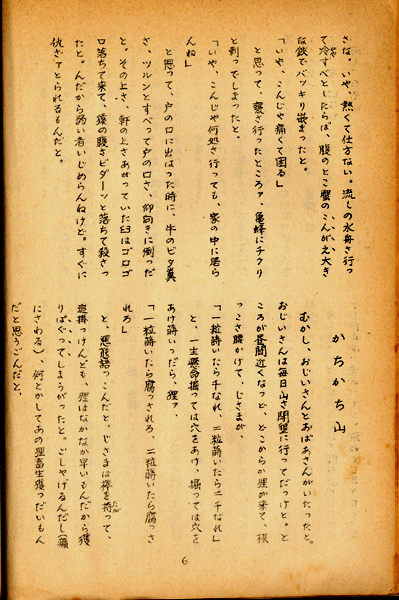 さな。いや、熱くて仕方ない。流しの水舟さ行っ
て冷すべとしたらば、腹のとこ蟹のこんがえ大き
な鋏でバッキリ嵌まったと。
「いや、こんじゃ痛くて困る」
と思って、寝さ行ったところァ、亀蜂にチクリ
と刺ってしまったと。
「いや、こんじゃ何処さ行っても、家の中に居ら
んね」
と思って、戸の口に出はった時に、牛のビタ糞
さ、ツルンとすべって戸の口さ、仰向きに倒った
と。その上さ、軒の上さあがっていた臼はゴロゴ
ロ落ちて来て、猿の腹さビダーッと落ちて殺さっ
たと。んだから弱い者いじめらんねけど。すぐに
仇さァとられるもんだと。
かちかち山
むかし、おじいさんとおばあさんがいたったと。
おじいさんは毎日山さ開墾に行ってだっけど。と
ころが昼間近くなっと、どこからか狸が来て、根
っこさ腰かけて、じさまが、
「一粒蒔いたら千なれ、二粒蒔いたら二千なれ」
と、一生懸命掘っては穴をあけ、掘っては穴を
あけ蒔いっだら、狸ァ、
「一粒蒔いたら腐っされろ 二粒蒔いたら腐っさ
れろ」
と、悪態語っこんだと。じさまは欅を持って、
追掛っけんども、狸はなかなか早いもんだから獲
りぱぐってしまうがったと。ごしゃげるんだし（癪
にさわる）、何とかしてあの狸畜生獲っだいもん
だと思うごんだと。
6